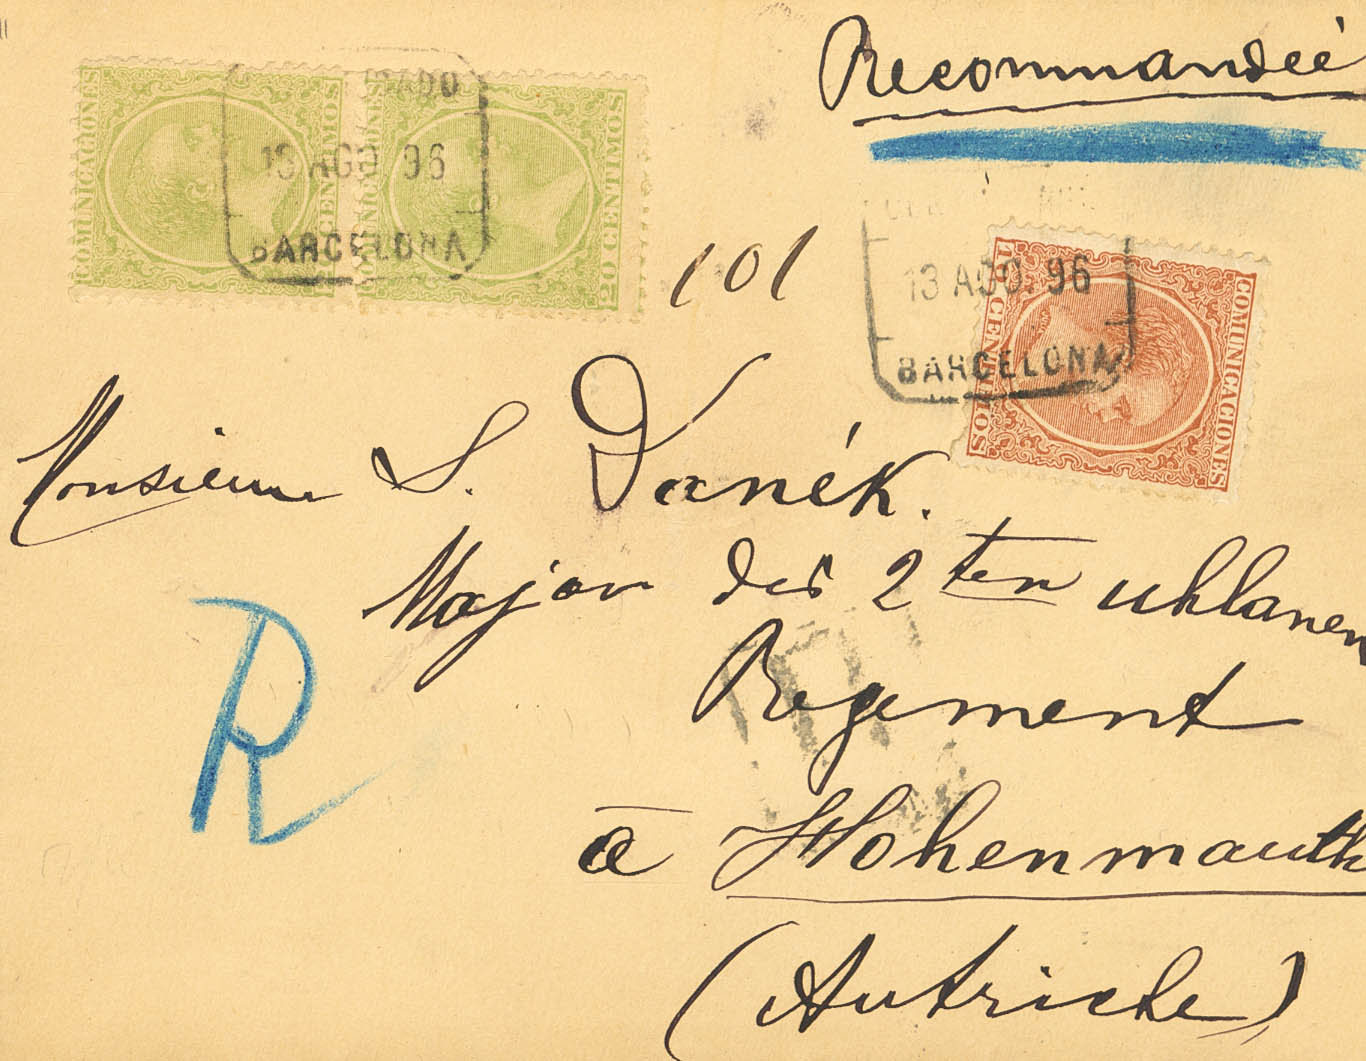 Recommandée
COMUNICACIONES
CENTIMOS
COMUNICACIONES
20 CENTIMOS
13 AGO 96
BARCELONA
101
13 AGO. 96
BARCELONA
COMUNICACIONES
CENTIMOS
Monsieur S. Danék.
Major des 2ten Uhlanen
Regiment
R
a Hohenmauth
(Autriche)